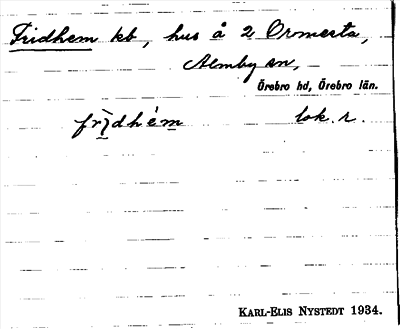 Fridhem kb, hus å 2 Ormesta,
Almby sn,
Örebro hd, Örebro län.
frìdhém lok. r.
KARL-ELIS NYSTEDT 1934.